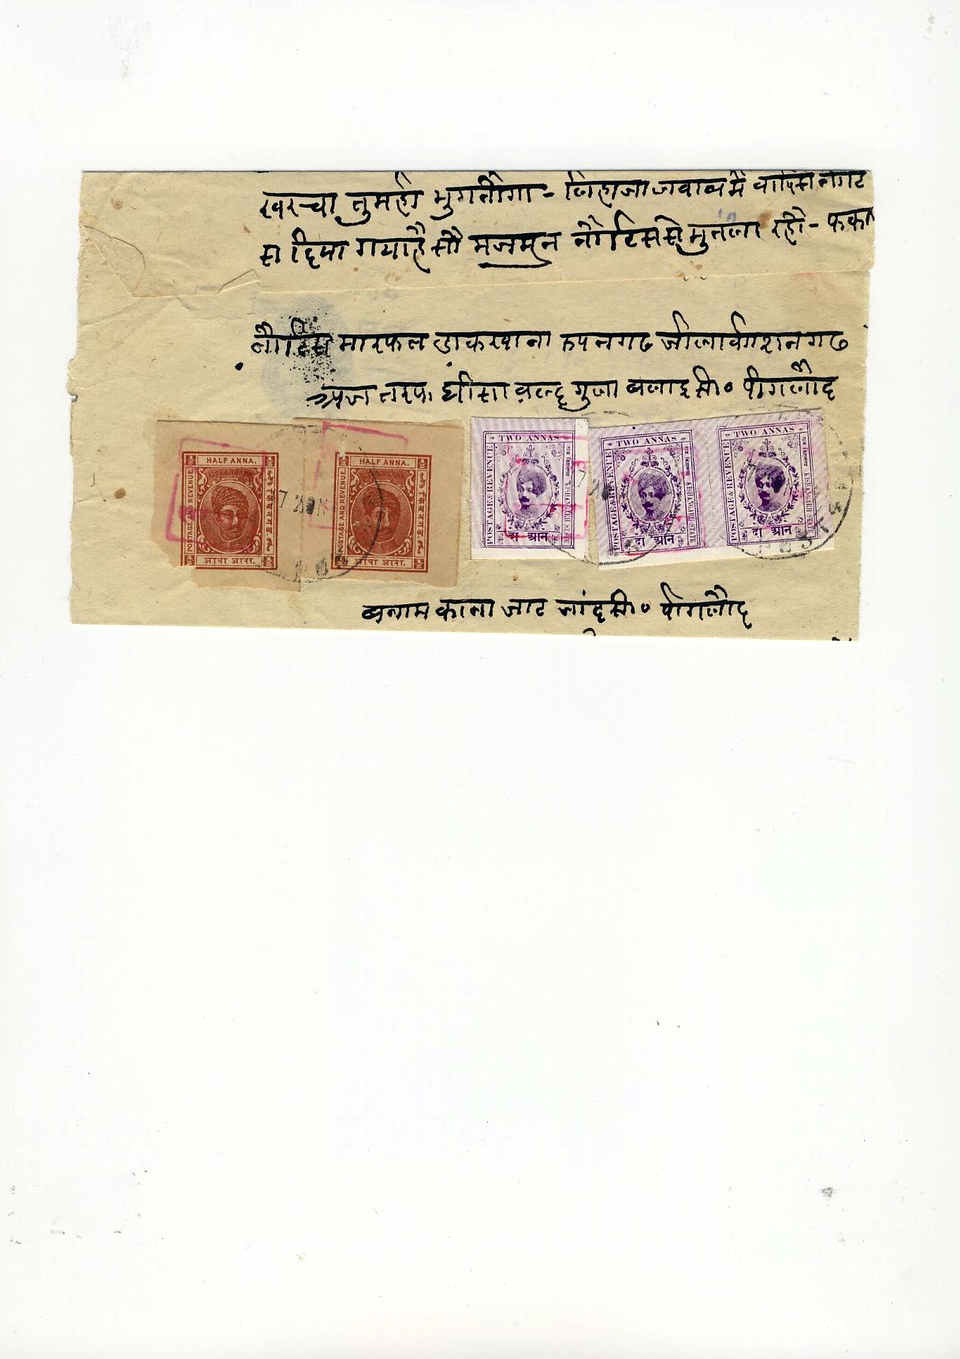 खरचा तुमही भुगतोगा - लिहाजा जवाब में वापिस नोट
स दिया गया है सौ मजमुन नोटिस से मुतला रहो - फकत
नौटिस मारफत डाकखाना रुपनगढ जीला किशनगढ
अज तरफ घीसा वल्द गुजा बलाइ सा० पींगलौद
HALF ANNA.
POSTAGE AND REVENUE
KISHANGARH
आधा आना.
HALF ANNA.
POSTAGE AND REVENUE
आधा आना.
TWO ANNAS
POSTAGE & REVENUE
दो आने
TWO ANNAS
POSTAGE & REVENUE
दो आने
TWO ANNAS
POSTAGE & REVENUE
दो आने
बनाम काना जाट सा० पींगलौद